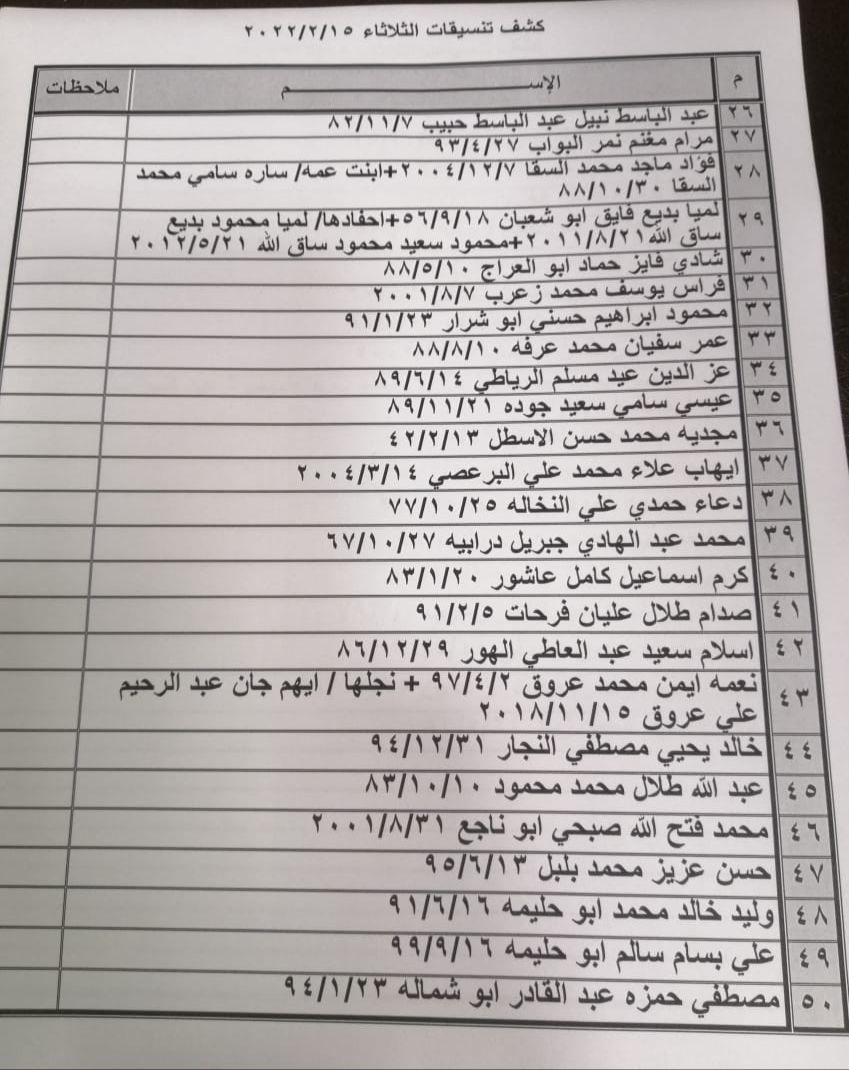 كشف تنسيقات الثلاثاء ٢٠٢٢/٢/١٥
م الإســـــــــــــــم ملاحظات
٢٦ عبد الباسط نبيل عبد الباسط حبيب ٨٢/١١/٧
٢٧ مرام مغنم نمر البواب ٩٣/٤/٢٧
٢٨ فؤاد ماجد محمد السقا ٢٠٠٤/١٢/٧+ابنت عمه/ ساره سامي محمد
السقا ٨٨/١٠/٣٠
٢٩ لميا بديع فايق ابو شعبان ٥٦/٩/١٨+احفادها/ لميا محمود بديع
ساق الله ٢٠١١/٨/٢١+محمود سعيد محمود ساق الله ٢٠١٢/٥/٢١
٣٠ شادي فايز حماد ابو العراج ٨٨/٥/١٠
٣١ فراس يوسف محمد زعرب ٢٠٠١/٨/٧
٣٢ محمود ابراهيم حسني ابو شرار ٩١/١/٢٣
٣٣ عمر سفيان محمد عرفه ٨٨/٨/١٠
٣٤ عز الدين عيد مسلم الرياطي ٨٩/٦/١٤
٣٥ عيسي سامي سعيد جوده ٨٩/١١/٢١
٣٦ مجديه محمد حسن الاسطل ٤٢/٢/١٣
٣٧ ايهاب علاء محمد علي البرعصي ٢٠٠٤/٣/١٤
٣٨ دعاء حمدي علي النخاله ٧٧/١٠/٢٥
٣٩ محمد عبد الهادي جبريل درابيه ٦٧/١٠/٢٧
٤٠ كرم اسماعيل كامل عاشور ٨٣/١/٢٠
٤١ صدام طلال عليان فرحات ٩١/٢/٥
٤٢ اسلام سعيد عبد العاطي الهور ٨٦/١٢/٢٩
٤٣ نعمه ايمن محمد عروق ٩٧/٤/٢ + نجلها / ايهم جان عبد الرحيم
علي عروق ٢٠١٨/١١/١٥
٤٤ خالد يحيي مصطفي النجار ٩٤/١٢/٣١
٤٥ عبد الله طلال محمد محمود ٨٣/١٠/١٠
٤٦ محمد فتح الله صبحي ابو ناجع ٢٠٠١/٨/٣١
٤٧ حسن عزيز محمد بلبل ٩٥/٦/١٣
٤٨ وليد خالد محمد ابو حليمه ٩١/٦/١٦
٤٩ علي بسام سالم ابو حليمه ٩٩/٩/١٦
٥٠ مصطفي حمزه عبد القادر ابو شماله ٩٤/١/٢٣